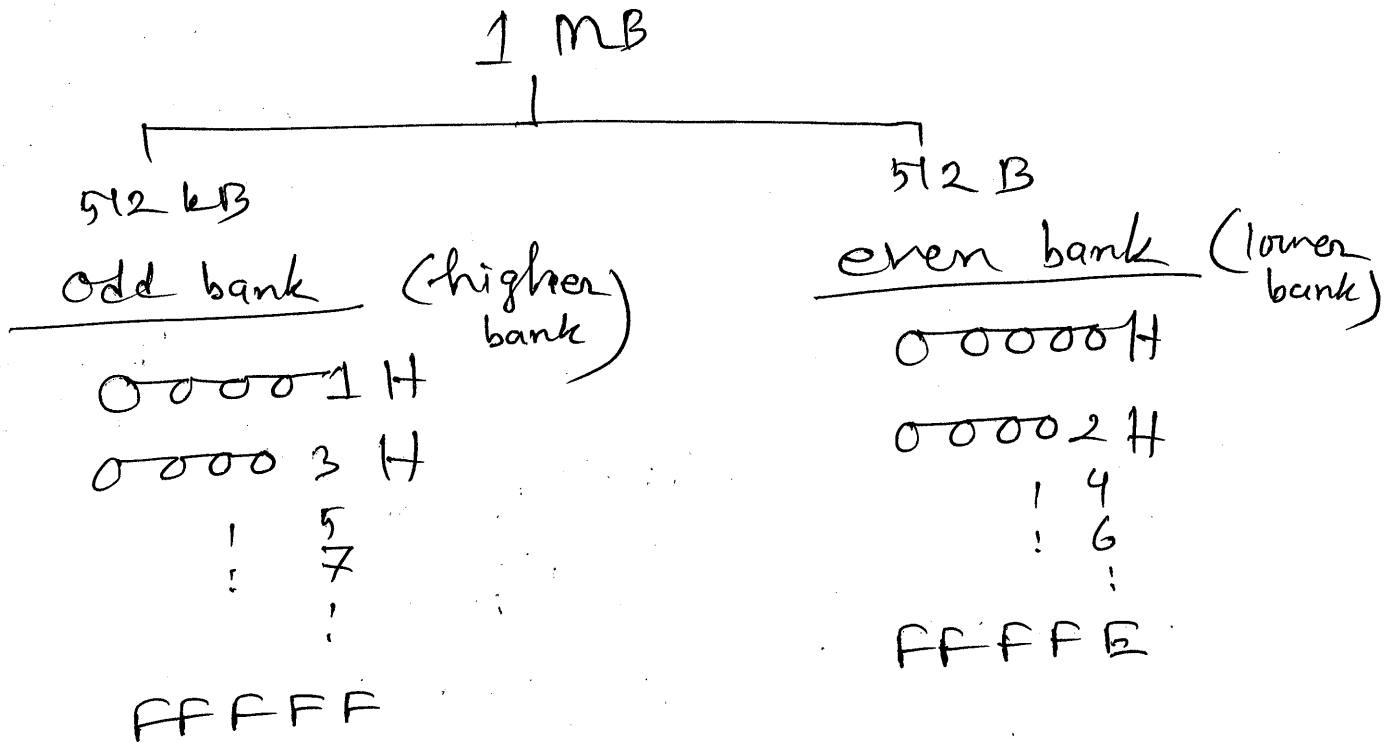 1 MB
512 kB
odd bank (higher
bank)
00001 H
0000 3 H
! 5
! 7
!
FFFFF
512 B
even bank (lower
bank)
00000H
00002H
! 4
! 6
!
FFFFE